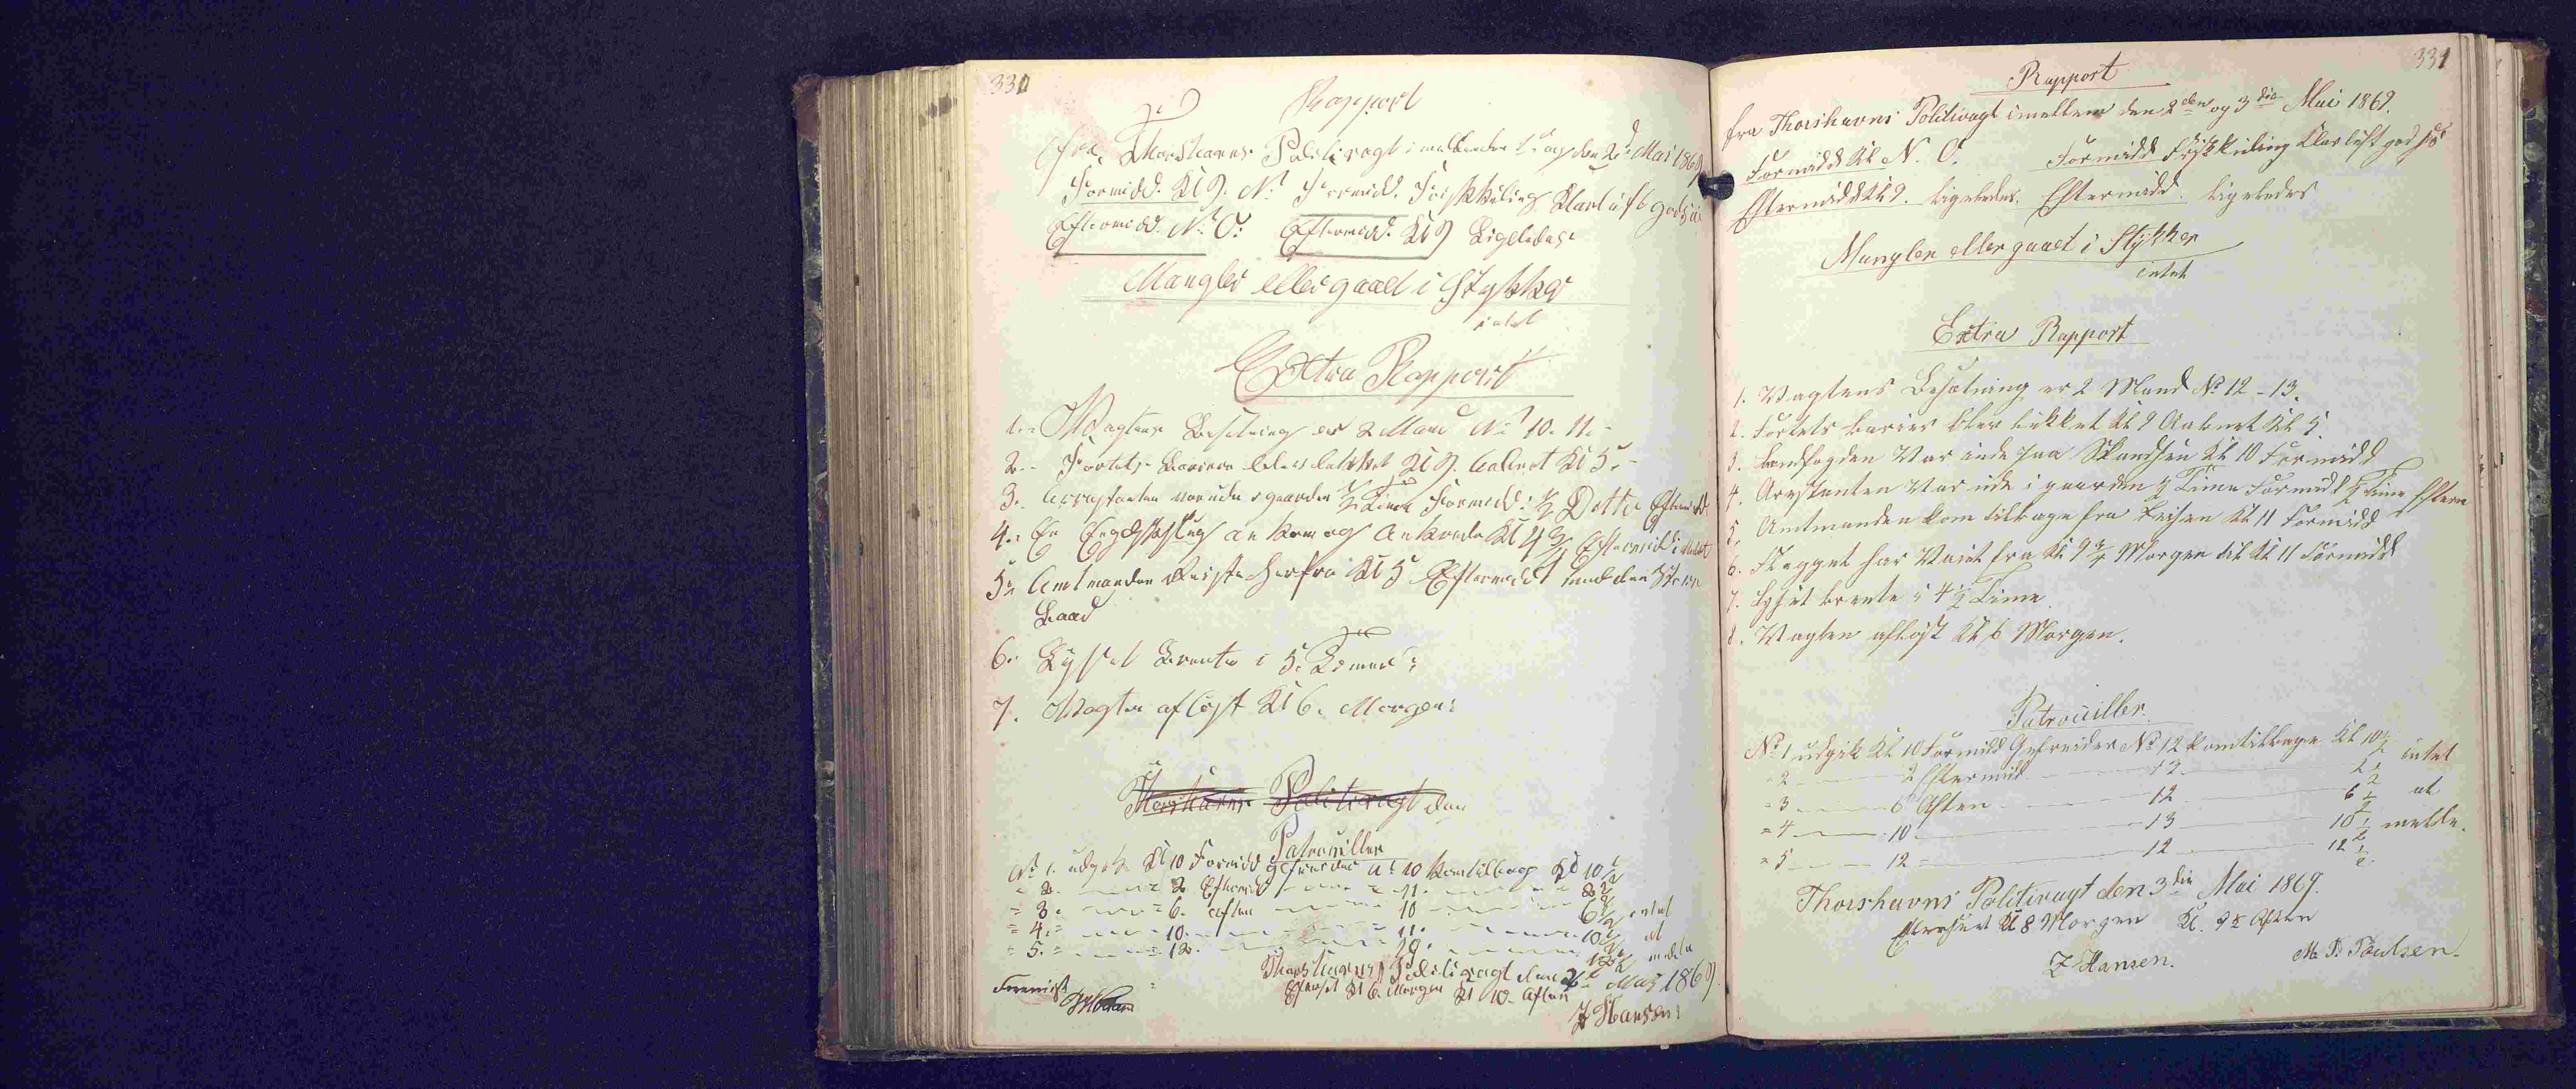 330
Rapport
fra Thorshavns Politivagt imellem den 1ste og den 2den Mai 1869
Formidd. Kl 9. N. Formidd. Frisk Kuling Klar luft god Sigt
Eftermidd. N. O. Eftermidd. Kl 9 Ligeledes
Mangler eller gaaet i Stykker
intet
Extra Rapport
1. Vagtens Besetning er 2 Mand No 10. 11.
2. Fortets Barriere blev lukket Kl 9. Aabnet Kl 5.
3. Arrestanten var ude i gaarden 1/2 Time Formidd. 1/2 Ditto Eftermidd
4. En Engelsk Slup ankom og Ankrede Kl 4 1/2 Eftermidd
5. Amtmanden Reiste herfra Kl 5 Eftermidd med den
Baad
6. Lyset Brente i 5 Timer
7. Vagten afløst Kl 6. Morgen
Thorshavns Politivagt den
Patrouiller
No 1. udgik Kl 10 Formidd Gefreider No 10 kom tilbage Kl 10 1/2
= 2. 2 Eftermidd 11. 2 1/2
= 3. 6. Aften 10 6 1/2 intet
= 4. 10. 11. 10 1/2 at
= 5. 12. 10. 12 1/2 melde
Thorshavns Politivagt den 2den Mai 1869.
Efterseet Kl 6. Morgen Kl 10. Aften
J Hansen
Foreviist
331
Rapport
fra Thorshavns Politivagt imellem den 2den og 3die Mai 1869.
Formidd Kl N. O. Formidd Frisk Kuling Klar luft god Sigt
Eftermidd Kl 9. ligeledes. Eftermidd. ligeledes
Mangler eller gaaet i Stykker
intet
Extra Rapport
1. Vagtens Besætning er 2 Mand No 12 - 13.
2. Fortets barier blev lukket Kl 9 Aabnet Kl 5.
3. Landfogden Var inde paa Skandsen Kl 10 Formidd
4. Arestanten Var ude i gaarden 1/2 Time Formidd 1/2 Time Efterm
5. Amtmanden kom tilbage fra Reisen Kl 11 Formidd
6. Flagget har Vaiet fra Kl 9 3/4 Morgen til Kl 11 Formidd
7. Lyset brente i 4 1/2 Time.
8. Vagten afløst Kl 6 Morgen.
Patrouiller.
No 1 udgik Kl 10 Formidd Gefreider No 12 kom tilbage Kl 10 1/2 intet
= 2 2 Eftermidd 13 2 1/2
= 3 6 Aften 12 6 1/2 at
= 4 10 13 10 1/2 melde.
= 5 12 12 12 1/2
Thorshavns Politivagt den 3die Mai 1869.
Efterseet Kl 8 Morgen Kl. 9 1/2 Aften
J Hansen. M. D. Poulsen.